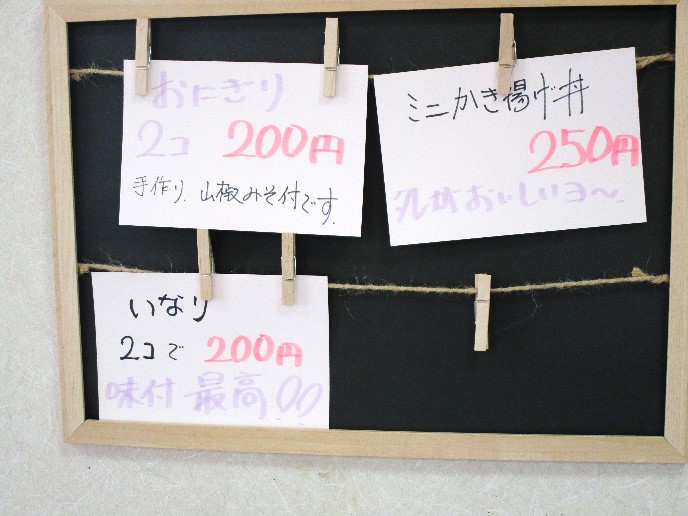 おにぎり
2コ 200円
手作り、山椒みそ付です。
ミニかき揚げ丼
250円
タレがおいしいヨ〜。
いなり
2コで 200円
味付 最高!!